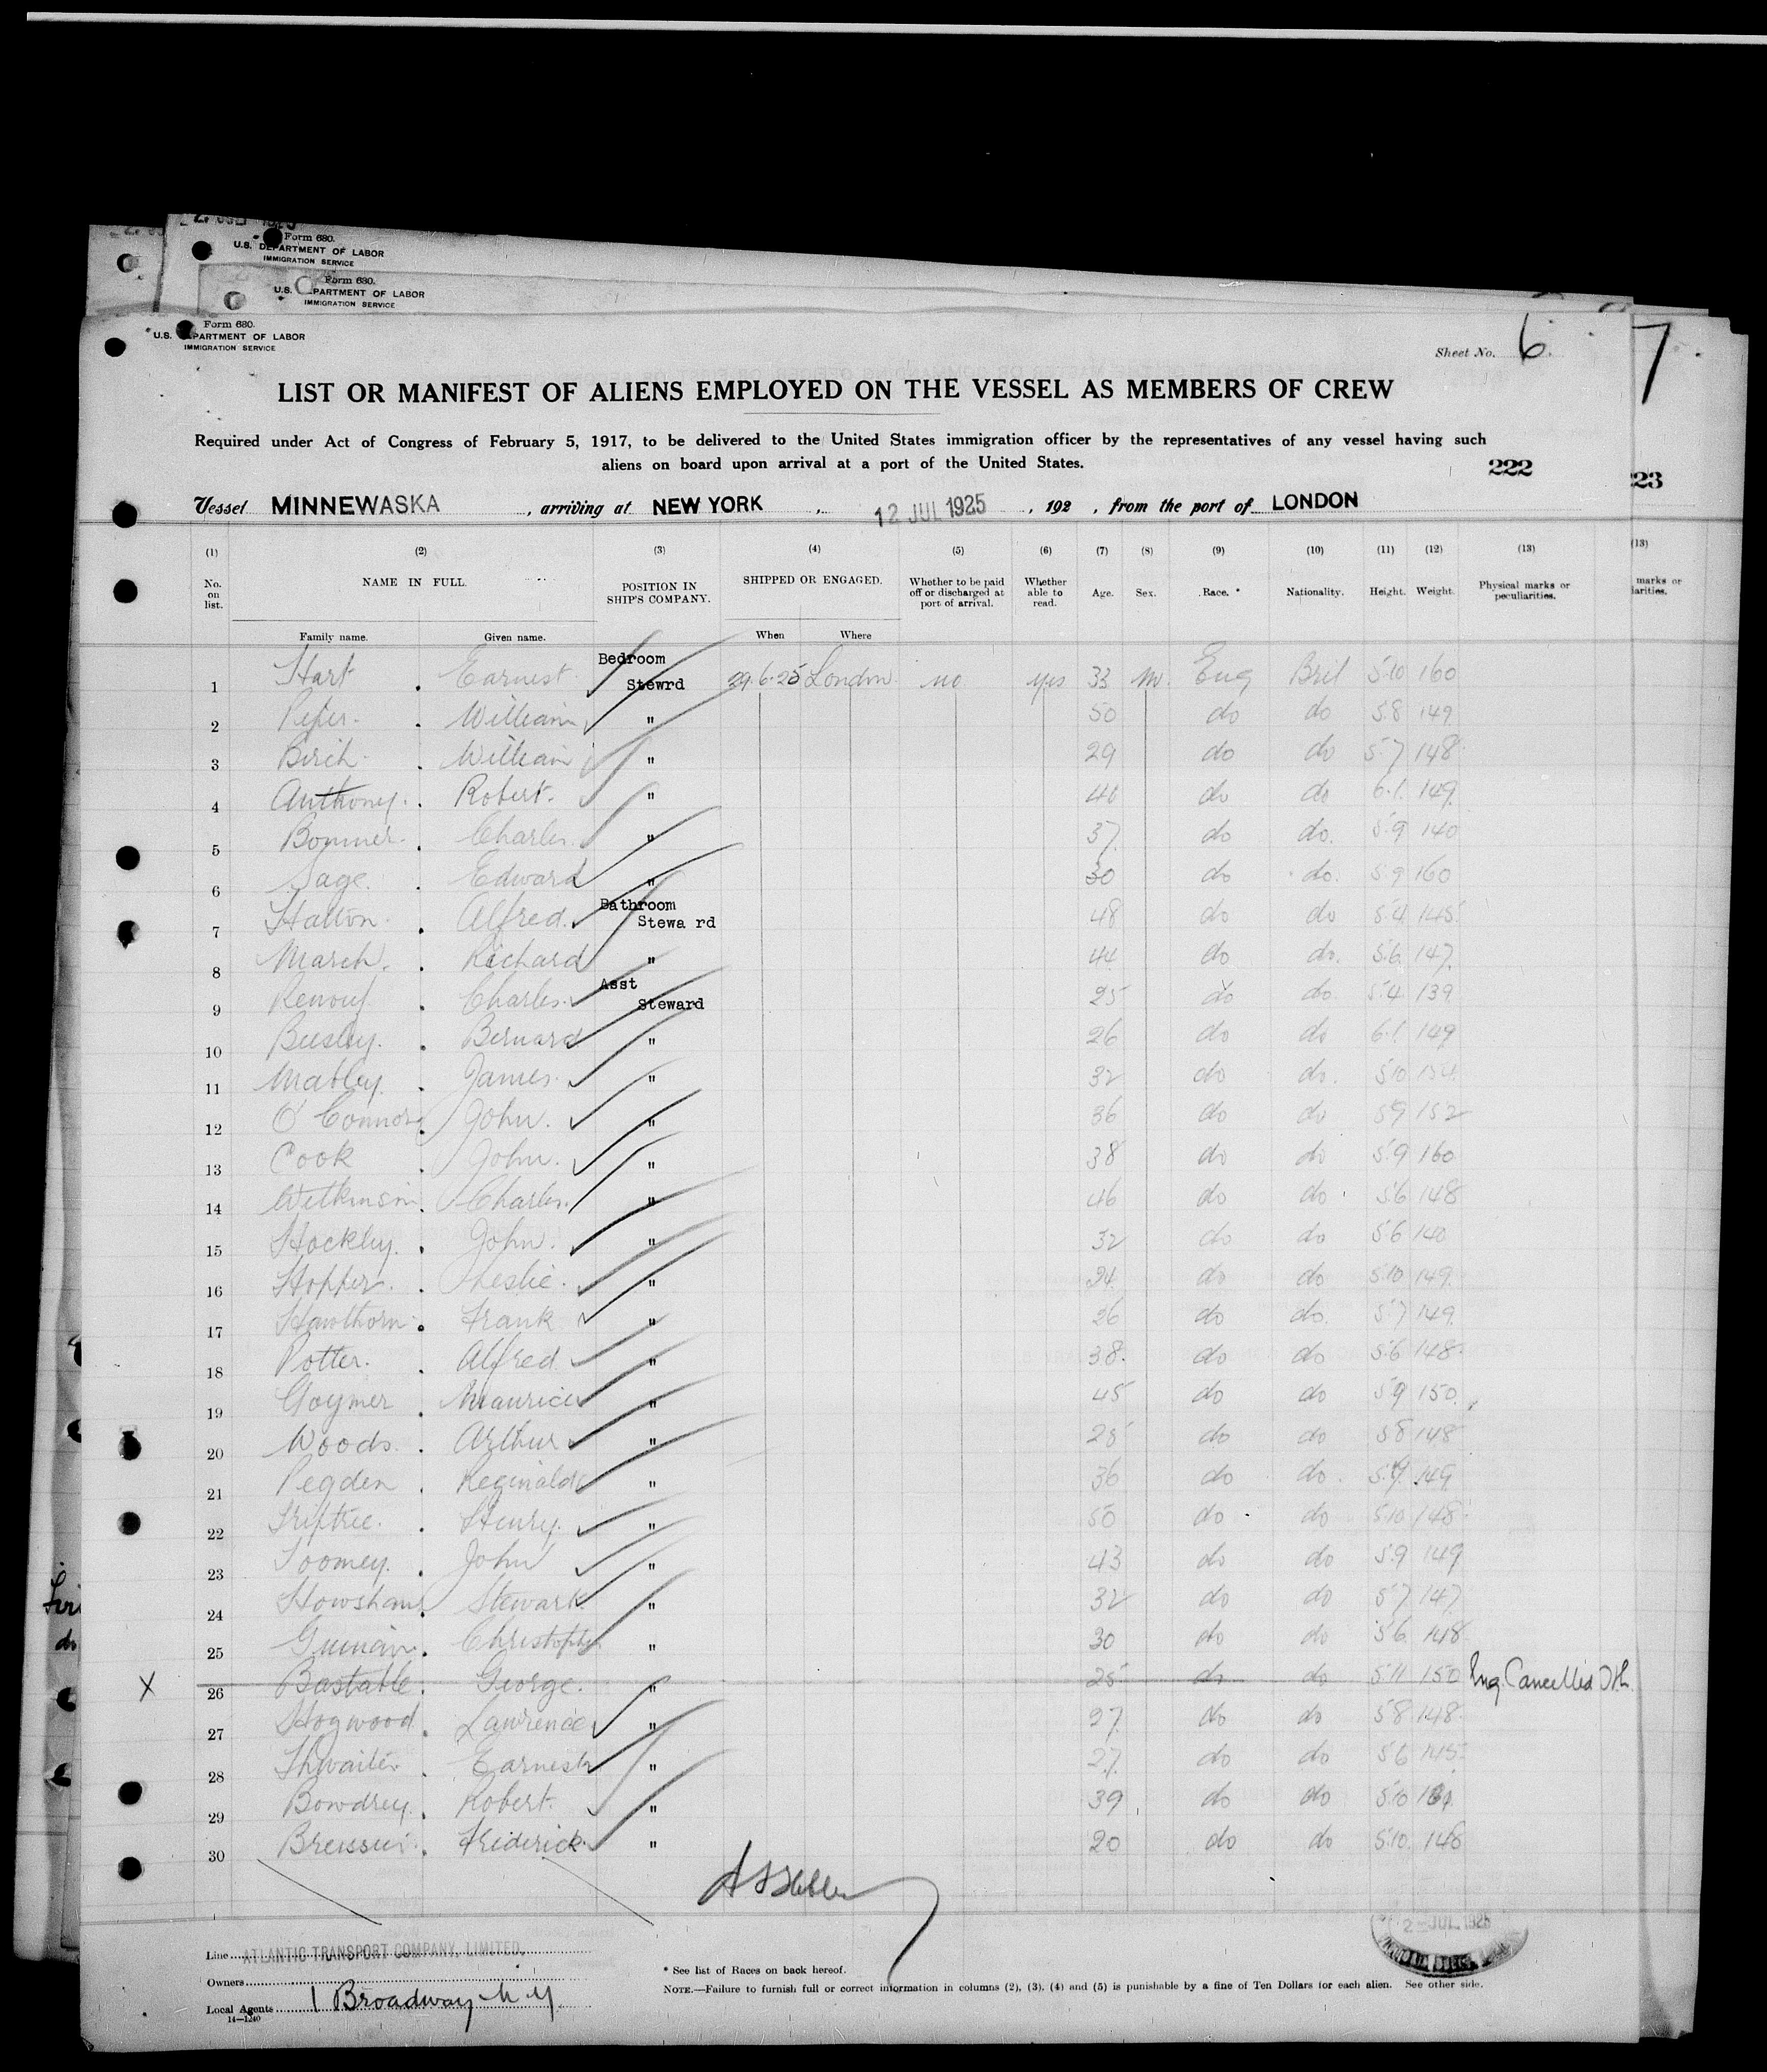 Form 680.
U.S. DEPARTMENT OF LABOR
IMMIGRATION SERVICE
Form 680.
U.S. PARTMENT OF LABOR
IMMIGRATION SERVICE
Form 680.
U.S. PARTMENT OF LABOR
IMMIGRATION SERVICE
Sheet No. 6. 7
LIST OR MANIFEST OF ALIENS EMPLOYED ON THE VESSEL AS MEMBERS OF CREW
Required under Act of Congress of February 5, 1917, to be delivered to the United States immigration officer by the representatives of any vessel having such
aliens on board upon arrival at a port of the United States.
222 223
Vessel MINNEWASKA, arriving at NEW YORK, 12 JUL 1925, 192 , from the port of LONDON
(1) (2) (3) (4) (5) (6) (7) (8) (9) (10) (11) (12) (13) (13)
No. on list. NAME IN FULL. POSITION IN SHIP'S COMPANY. SHIPPED OR ENGAGED. Whether to be paid off or discharged at port of arrival. Whether able to read. Age. Sex. Race. * Nationality. Height. Weight. Physical marks or peculiarities. marks or larities.
Family name. Given name. When Where
1 Hart Earnest Bedroom Stewrd 29.6.25 London no yes 33 M. Eng Bril 5.10 160
2 William " 50 do do 5.8 149
3 Birch William " 29 do do 5.7 148
4 Anthony Robert. " 40 do do 6.1. 149
5 Charles " 37 do do. 5.9 140
6 Sage. Edward " 30 do do. 5.9 160
7 Alfred. Bathroom Stewa rd 48 do do 5.4 145
8 March. Richard " 44 do do. 5.6 147
9 Renouf Charles Asst Steward 25 do do 5.4 139
10 Beesley. Bernard " 26 do do 6.1. 149
11 Mabley James. " 32 do do. 5.10 154
12 O'Connor John. " 36 do do 5.9 152
13 Cook John. " 38 do do 5.9 160
14 Wilkinson Charles. " 46 do do 5.6 148
15 Hockley. John. " 32 do do 5.6 140
16 Hopper. Leslie. " 24 do do 5.10 149.
17 Hawthorn Frank " 26 do do. 5.7 149.
18 Potter. Alfred " 38. do do 5.6 148
19 Goymer Maurice " 45 do do 5.9 150.
20 Woods. Arthur " 25 do do 5.8 148
21 Pegden Reginald " 36 do do. 149
22 Triptree. Henry. " 50 do do 5.10 148
23 Toomey. John " 43 do do 5.9 149
24 Stewart " 32 do do 5.7 147
25 Christopher " 30 do do 5.6 148
X 26 Bastable George. " 25 do do 5.11 150 Eng. Cancelled
27 Hogwood Lawrence " 27 do do 5.8 148
28 Thwaites Earnest " 27. do do 5.6 145
29 Bowdrey. Robert. " 39 do do 5.10
30 Frederick " 20 do do 5.10. 148
Line ATLANTIC TRANSPORT COMPANY, LIMITED.
Owners
Local Agents 1 Broadway N.Y.
14—1240
* See list of Races on back hereof.
NOTE.—Failure to furnish full or correct information in columns (2), (3), (4) and (5) is punishable by a fine of Ten Dollars for each alien. See other side.
2-JUL 1925